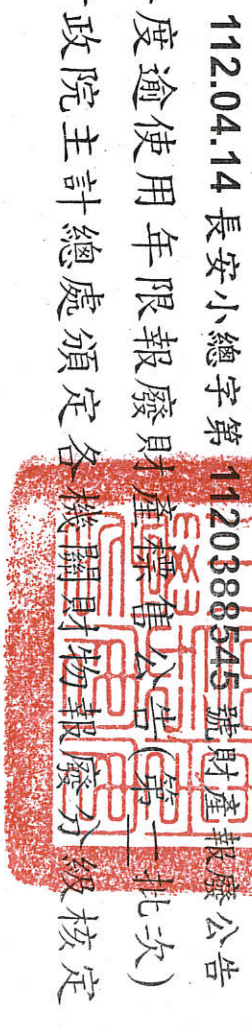 112.04.14 長安小總字第 1120388545 號財產報廢公告
度逾使用年限報廢財產標售公告(第二批次)
政院主計總處頒定各機關財物報廢分級核定